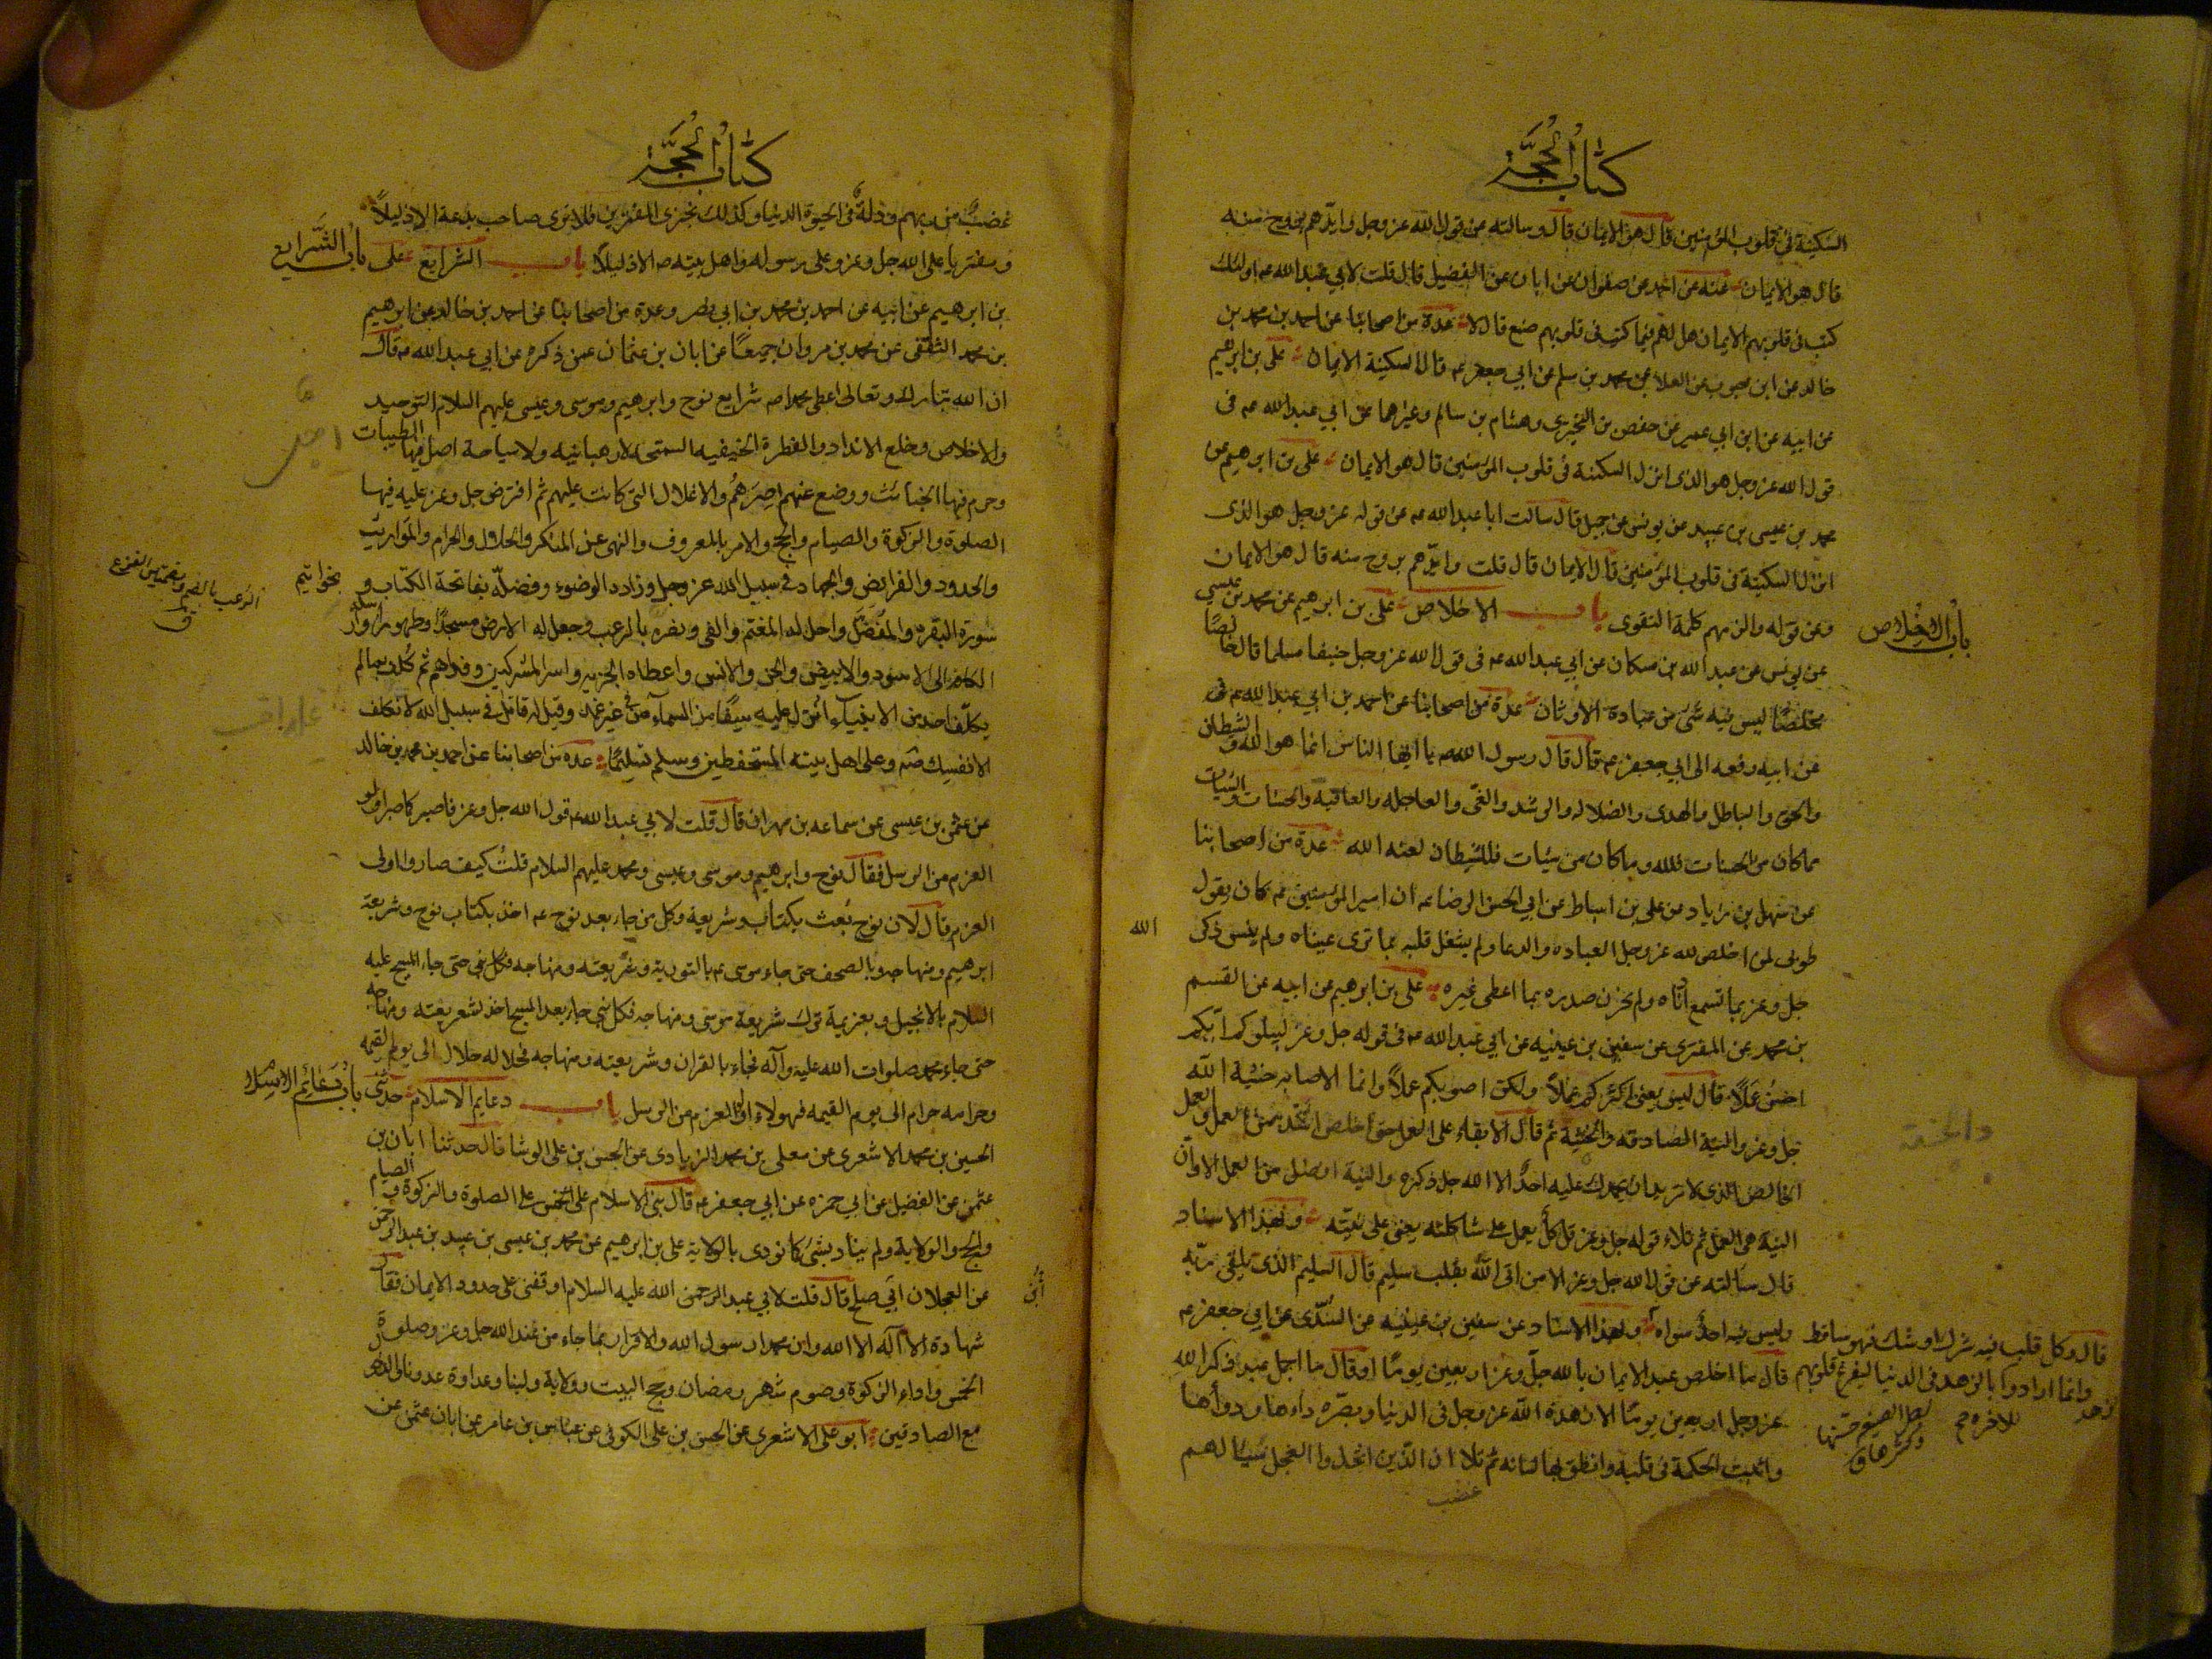 كتاب الحجة
السكينة في قلوب المؤمنين قال هو الايمان قال وسالته عن قول الله عز وجل وايدهم بروح منه
قال هو الايمان عنه عن احمد عن صفوان عن ابان عن الفضيل قال قلت لابي عبد الله عه اولئك
كتب في قلوبهم الايمان هل لهم فيما كتب في قلوبهم صنع قال لا عدة من اصحابنا عن احمد بن محمد بن
خالد عن ابن محبوب عن العلا عن محمد بن مسلم عن ابي جعفر عه قال السكينة الايمان علي بن ابرهيم
عن ابيه عن ابن ابي عمير عن حفص بن البختري وهشام بن سالم وغيرهما عن ابي عبد الله عه في
قول الله عز وجل هو الذي انزل السكينة في قلوب المؤمنين قال هو الايمان علي بن ابرهيم عن
محمد بن عيسى بن عبيد عن يونس عن جميل قال سالت ابا عبد الله عه عن قوله عز وجل هو الذي
انزل السكينة في قلوب المؤمنين قال الايمان قال قلت وايدهم بروح منه قال هو الايمان
وعن قوله والزمهم كلمة التقوى باب الاخلاص علي بن ابرهيم عن محمد بن عيسى
باب الاخلاص
عن يونس عن عبد الله بن مسكان عن ابي عبد الله عه في قول الله عز وجل حنيفا مسلما قال خالصا
مخلصا ليس فيه شئ من عبادة الاوثان عدة من اصحابنا عن احمد بن ابي عبد الله عه في
عن ابيه رفعه الى ابي جعفر عه قال قال رسول الله صه يا ايها الناس انما هو الله والشيطان
والحق والباطل والهدى والضلالة والرشد والغي والعاجله والعاقبه والحسنات والسيات
مما كان من الحسنات فلله وما كان من سيئات فللشيطان لعنه الله عدة من اصحابنا
عن سهل بن زياد عن علي بن اسباط عن ابي الحسن الرضا عه ان امير المؤمنين عه كان يقول
طوبى لمن اخلص لله عز وجل العباده والدعا ولم يشغل قلبه بما ترى عيناه ولم ينس ذكر
الله
جل وعز بما تسمع اذناه ولم يحزن صدره بما اعطى غيره علي بن ابرهيم عن ابيه عن القسم
بن محمد عن المنقري عن سفين بن عيينه عن ابي عبد الله عه في قوله جل وعز ليبلوكم ايكم
احسن عملا قال ليس يعني اكثركم عملا ولكن اصوبكم عملا وانما الاصابه خشية الله
جل وعز والنية الصادقه والخشية ثم قال الابقاء على العمل حتى يخلص اشد من العمل والعمل
الخالص الذي لا تريد ان يحمدك عليه احد الا الله جل ذكره والنية افضل من العمل الا وان
النية هي العمل ثم تلا قوله جل وعز قل كل يعمل على شاكلته يعني على نيته وبهذا الاسناد
قال سالته عن قول الله جل وعز الا من اتى الله بقلب سليم قال السليم الذي يلقى ربه
وليس فيه احد سواه وبهذا الاسناد عن سفين بن عيينه عن السندي عن ابي جعفر عه
قال وكل قلب فيه شرك او شك فهو ساقط
وانما ارادوا بالزهد في الدنيا لتفرغ قلوبهم
للاخره
قال ما اخلص عبد الايمان بالله جل وعز اربعين يوما او قال ما اجمل عبد ذكر الله
عز وجل اربعين يوما الا زهده الله عز وجل في الدنيا وبصره داءها ودواءها
واثبت الحكمة في قلبه وانطق بها لسانه ثم تلا ان الذين اتخذوا العجل سينالهم
غضب
كتاب الحجة
غضب من ربهم وذلة في الحيوة الدنيا وكذلك نجزي المفترين فلا ترى صاحب بدعة الا ذليلا
ومفتريا على الله جل وعز وعلى رسوله واهل بيته صه الا ذليلا باب الشرايع علي
باب الشرايع
بن ابرهيم عن ابيه عن احمد بن محمد بن ابي نصر وعدة من اصحابنا عن احمد بن خالد عن ابرهيم
بن محمد الثقفي عن محمد بن مروان جميعا عن ابان بن عثمان عمن ذكره عن ابي عبد الله عه قال
ان الله تبارك وتعالى اعطى محمدا صه شرايع نوح وابرهيم وموسى وعيسى عليهم السلام التوحيد
والاخلاص وخلع الانداد والفطرة الحنيفيه السمحة لا رهبانيه ولا سياحة احل فيها الطيبات
وحرم فيها الخبائث ووضع عنهم اصرهم والاغلال التي كانت عليهم ثم افترض جل وعز عليه فيها
الصلوة والزكوة والصيام والحج والامر بالمعروف والنهي عن المنكر والحلال والحرام والمواريث
والحدود والفرائض والجهاد في سبيل الله عز وجل وزاده الوضوء وفضله بفاتحة الكتاب و
بخواتيم
سورة البقره والمفصل واحل له المغنم والفئ ونصره بالرعب وجعل له الارض مسجدا وطهورا وارسله
الكافة الى الاسود والابيض والجن والانس واعطاه الجزيه واسر المشركين وفداهم ثم كلف بما لم
يكلف احد من الانبياء انزل عليه سيفا من السماء في غير غمد وقيل له قاتل في سبيل الله لا تكلف
الا نفسك صه وعلى اهل بيته المستحفظين وسلم تسليما عدة من اصحابنا عن احمد بن محمد بن خالد
عن عثمن بن عيسى عن سماعه بن مهران قال قلت لابي عبد الله عه قول الله جل وعز فاصبر كما صبر اولو
العزم من الرسل فقال نوح وابرهيم وموسى وعيسى ومحمد عليهم السلام قلت كيف صاروا اولى
العزم قال لان نوح بعث بكتاب وشريعة وكل من جاء بعد نوح عه اخذ بكتاب نوح وشريعة
ابرهيم ومنهاجه وبالصحف حتى جاء موسى عه بالتورية وشريعته ومنهاجه فكل نبي حتى جاء المسيح عليه
السلام بالانجيل وبعزيمة ترك شريعة موسى ومنهاجه فكل نبي جاء بعد المسيح اخذ بشريعته ومنهاجه
حتى جاء محمد صلوات الله عليه وآله فجاء بالقران وشريعته ومنهاجه فحلاله حلال الى يوم القيمه
وحرامه حرام الى يوم القيمه فهولاء اولوا العزم من الرسل باب دعايم الاسلام حدثنى
باب دعائم الاسلام
الحسين بن محمد الاشعري عن معلى بن محمد الزيادي عن الحسن بن علي الوشا قال حدثنا ابان بن
عثمن عن الفضيل عن ابي حمزه عن ابي جعفر عه قال بني الاسلام على الخمس على الصلوة والزكوة والصيام
والحج والولاية ولم يناد بشئ كما نودى بالولاية علي بن ابرهيم عن محمد بن عيسى بن عبيد بن عبد الرحمن
عن العجلان ابي صلح قال قلت لابي عبد الرحمن الله عليه السلام اوقفني على حدود الايمان فقال
شهادة الا اله الا الله وان محمدا رسول الله والاقرار بما جاء من عند الله جل وعز وصلوة
الخمس واداء الزكوة وصوم شهر رمضان وحج البيت وولاية ولينا وعداوة عدونا والدخول
مع الصادقين ابو علي الاشعري عن الحسن بن علي الكوفي عن عباس بن عامر عن ابان عثمن عن